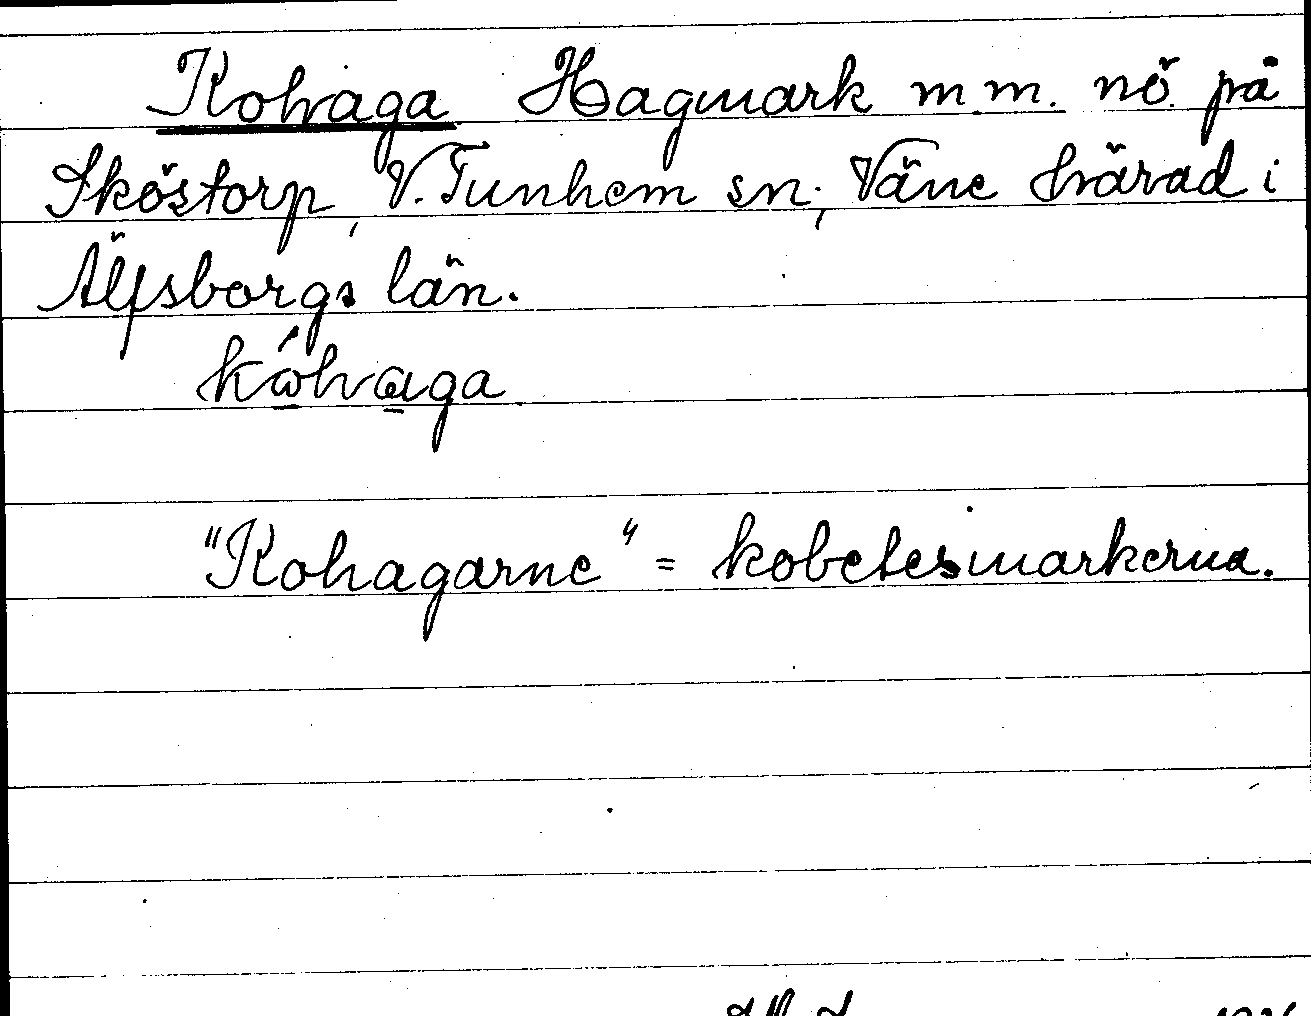 Kohaga Hagmark m.m. nö på
Sköstorp, V. Tunhem sn; Väne härad i
Älfsborgs län.
kώ̲ha̲ga
"Kohagarne" = kobetesmarkerna.